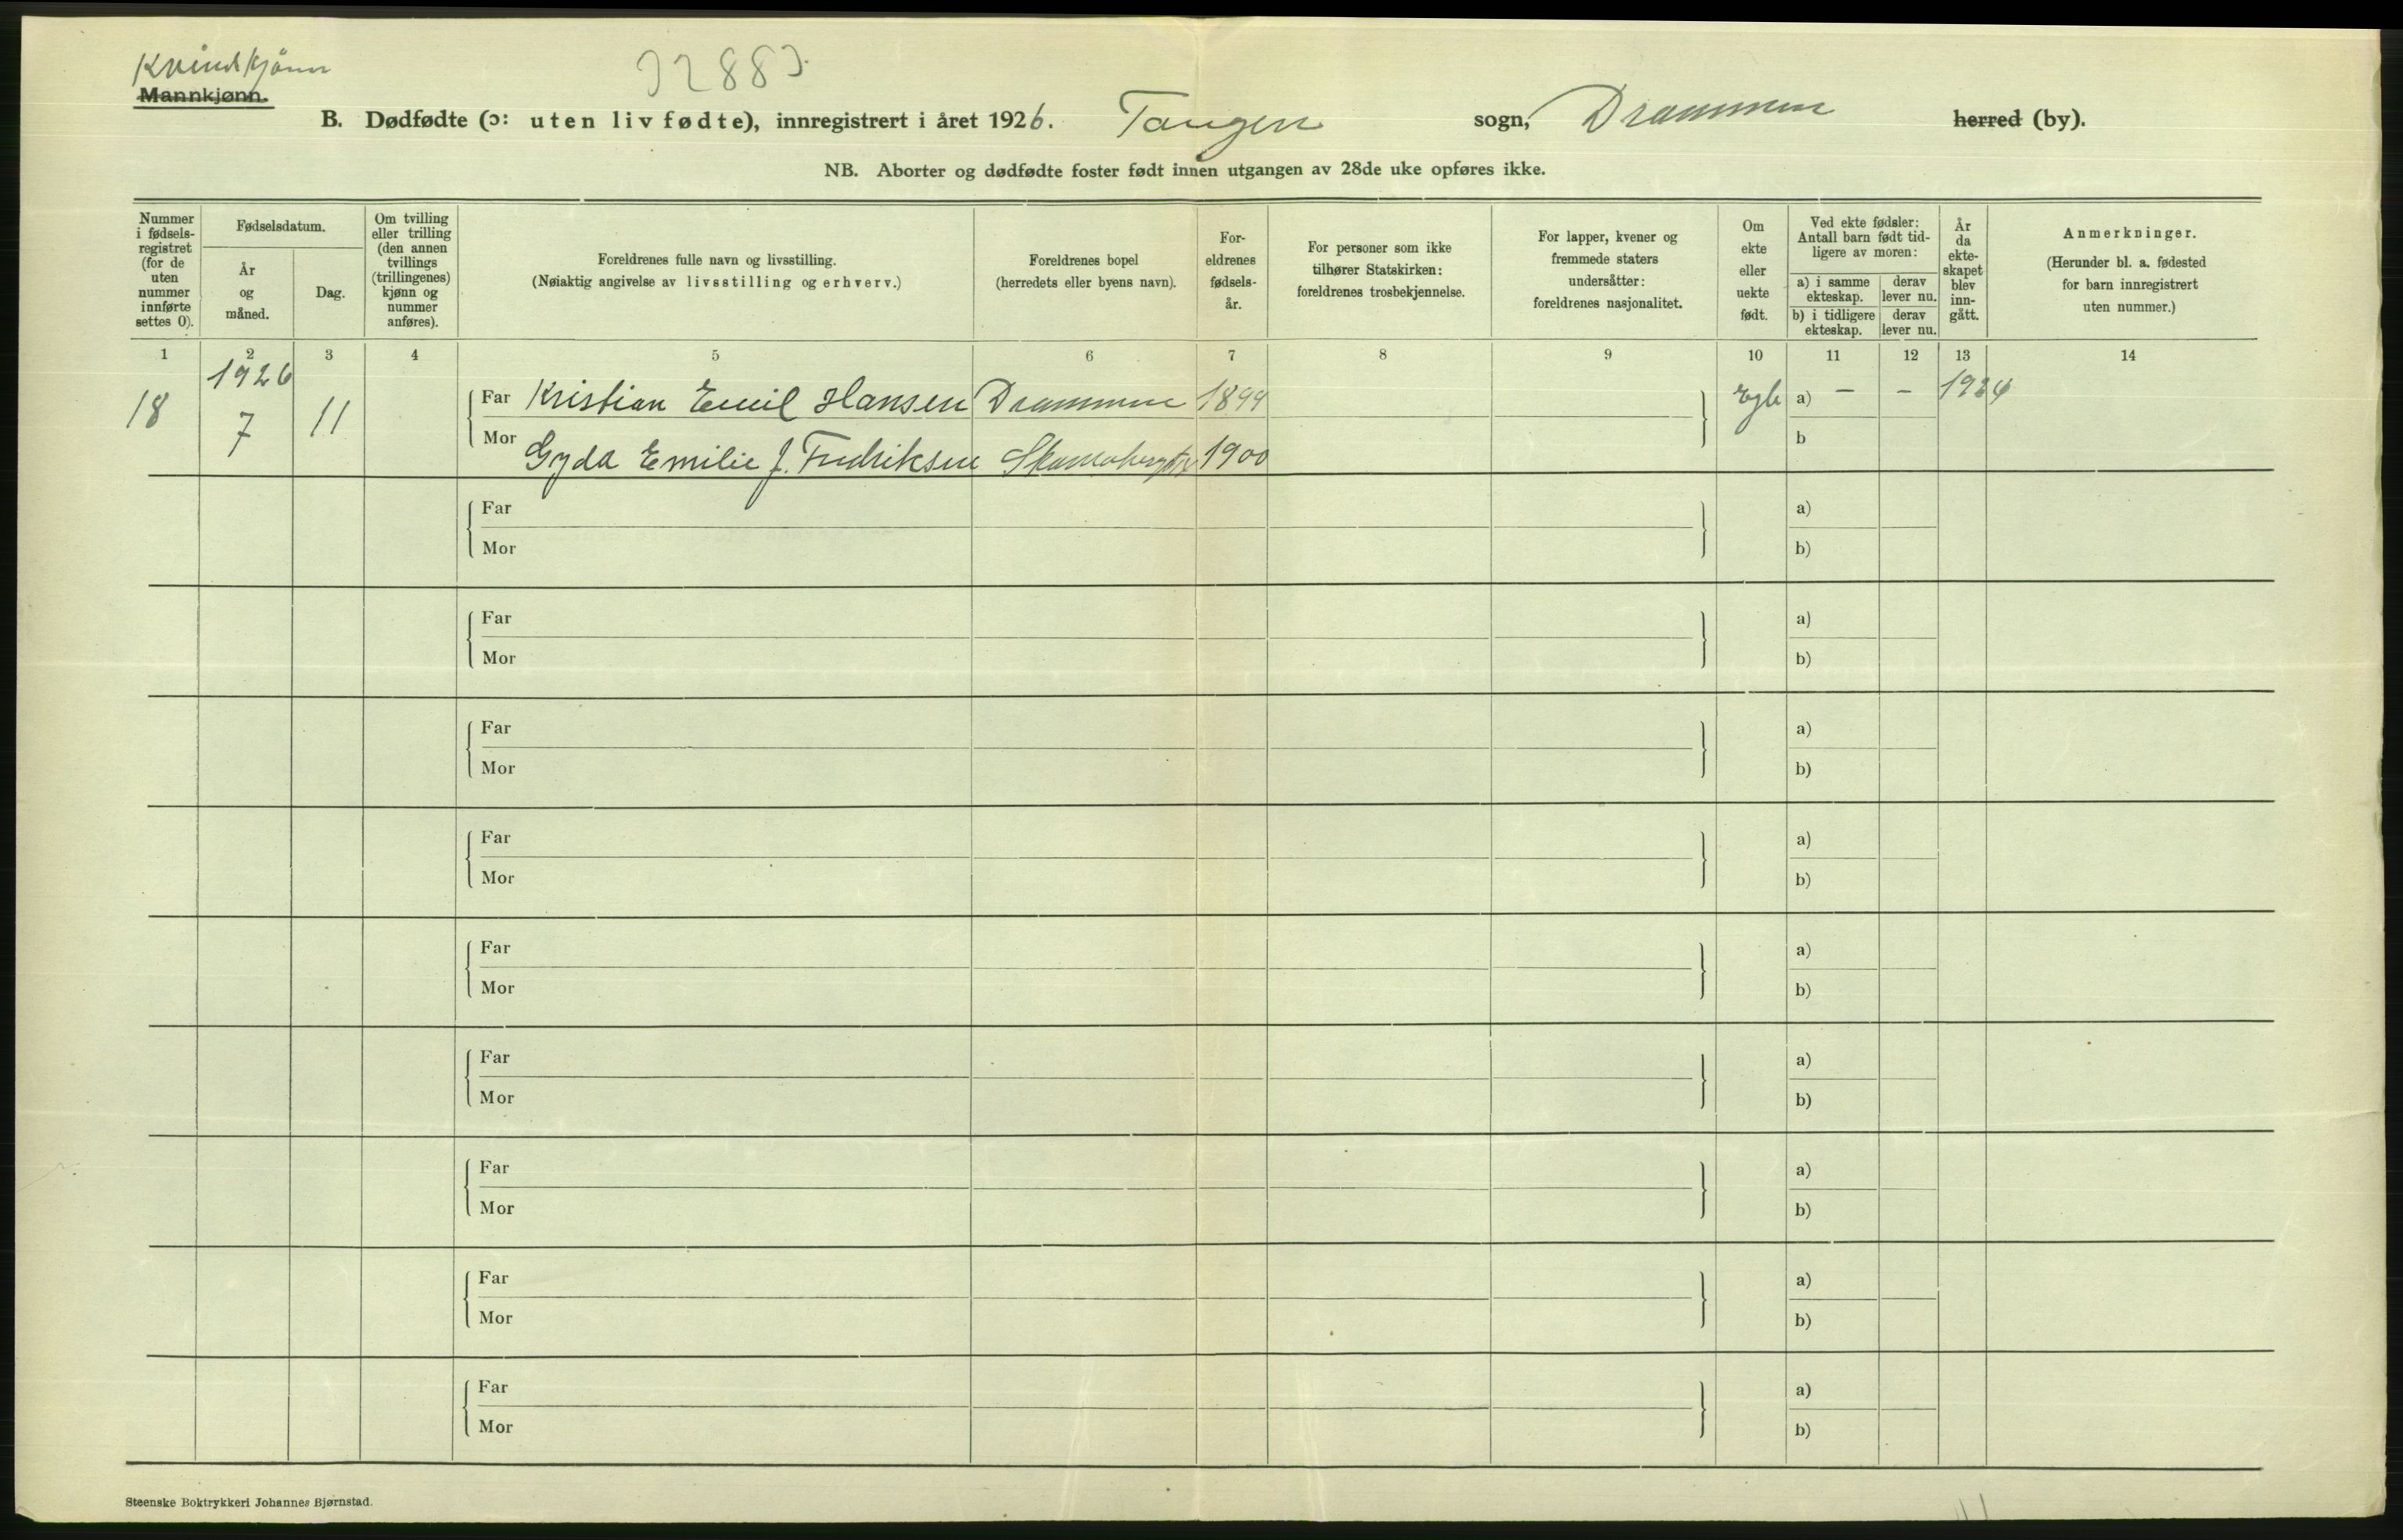 Kvindkjønn
Mannkjønn.
B. Dødfødte (ɔ: uten liv fødte), innregistrert i året 1926. Tangen sogn, Drammen herred (by).
NB. Aborter og dødfødte foster født innen utgangen av 28de uke opføres ikke.
Nummer i fødsels-registret (for de uten nummer innførte settes 0).
Fødselsdatum.
År og måned.
Dag.
Om tvilling eller trilling (den annen tvillings (trillingenes) kjønn og nummer anføres).
Foreldrenes fulle navn og livsstilling.
(Nøiaktig angivelse av livsstilling og erhverv.)
Foreldrenes bopel
(herredets eller byens navn).
For-eldrenes fødsels-år.
For personer som ikke tilhører Statskirken: foreldrenes trosbekjennelse.
For lapper, kvener og fremmede staters undersåtter: foreldrenes nasjonalitet.
Om ekte eller uekte født.
Ved ekte fødsler: Antall barn født tid-ligere av moren:
a) i samme ekteskap.
derav lever nu.
b) i tidligere ekteskap.
derav lever nu.
År da ekte-skapet blev inn-gått.
Anmerkninger.
(Herunder bl. a. fødested for barn innregistrert uten nummer.)
1 2 3 4 5 6 7 8 9 10 11 12 13 14
1926
18 7 11
Far Kristian Emil Hansen Drammen 1899 a) - - 1924
Mor Gyda Emilie f. Fredriksen 1900 b
Far a)
Mor b)
Far a)
Mor b)
Far a)
Mor b)
Far a)
Mor b)
Far a)
Mor b)
Far a)
Mor b)
Far a)
Mor b)
Far a)
Mor b)
Far a)
Mor b)
Steenske Boktrykkeri Johannes Bjørnstad.